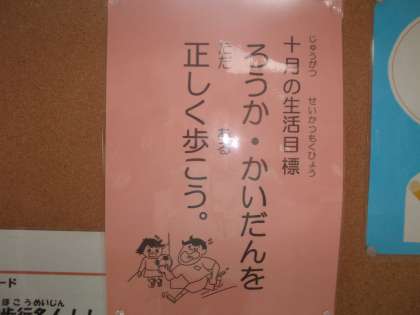 十月の生活目標
じゅうがつ せいかつもくひょう
ろうか・かいだんを
正しく歩こう。
ただ ある
ード
ほこうめいじん